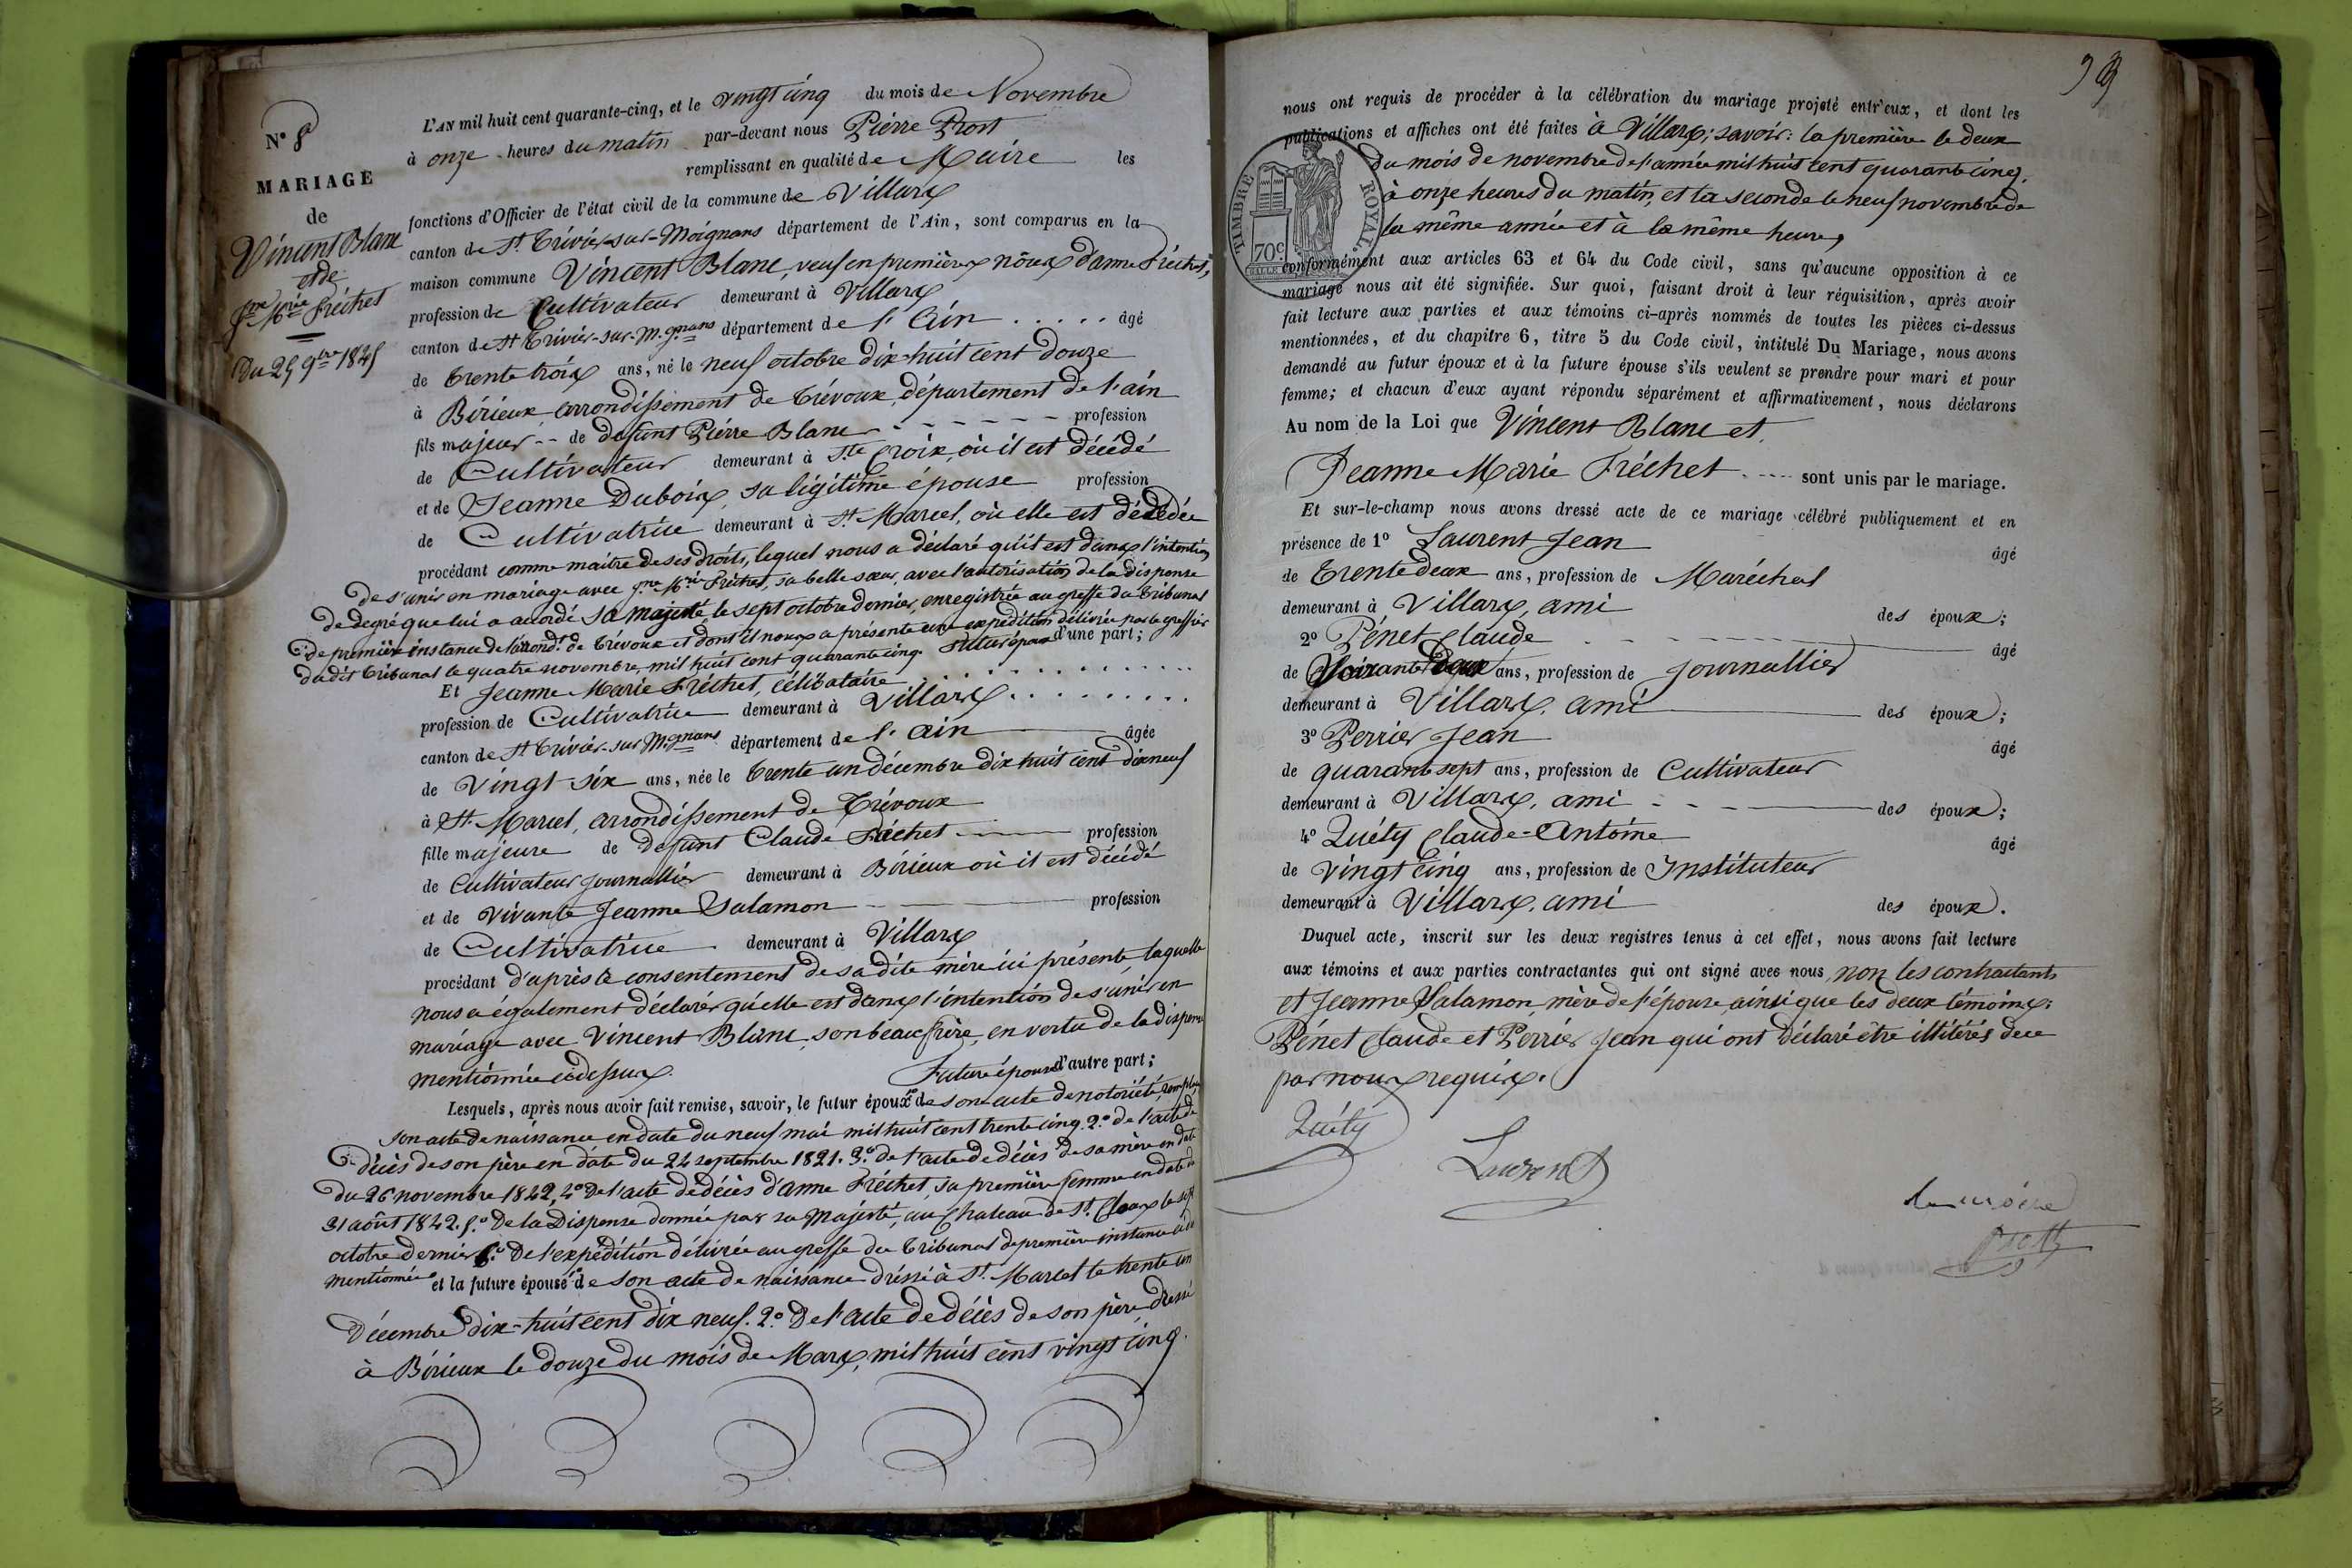 N° 8
MARIAGE
de
Vincent Blanc
et de
Jne Mie Fréchet
Du 25 9bre 1845
L'AN mil huit cent quarante-cinq, et le vingt cinq du mois de Novembre
à onze heures du matin par-devant nous Pierre Prost
remplissant en qualité de Maire les
fonctions d'Officier de l'état civil de la commune de Villars
canton de St Trivier-sur-Moignans département de l'Ain, sont comparus en la
maison commune Vincent Blanc, veuf en premières nôces d'anne Fréchet,
profession de Cultivateur demeurant à Villars
canton de St Trivier-sur-M.gnans département de l'Ain âgé
de trente trois ans, né le neuf octobre dix-huit cent douze
à Birieux arrondissement de Trévoux, département de l'ain
fils majeur de defunt Pierre Blanc profession
de Cultivateur demeurant à Ste Croix, où il est décédé
et de Jeanne Dubois, sa légitime épouse profession
de Cultivatrice demeurant à St Marcel, où elle est décédée
procédant comme maitre de ses droits, lequel nous a déclaré qu'il est dans l'intention
de s'unir en mariage avec Jne Mie Fréchet, sa belle sœur, avec l'autorisation de la dispense
de degré que lui a accordé sa majesté, le sept octobre dernier, enregistrée au greffe du tribunal
de première instance de l'arrond.t de Trévoux et dont il nous a présenté une expédition délivrée par le greffier
du dit tribunal le quatre novembre, mil huit cent quarante cinq. futur époux d'une part;
Et Jeanne Marie Fréchet, célibataire
profession de Cultivatrice demeurant à Villars
canton de St Trivier-sur M.gnans département de l'ain âgée
de Vingt-six ans, née le trente un décembre dix huit cent dix neuf
à St Marcel, arrondissement de Trévoux
fille majeure de defunt Claude Fréchet profession
de Cultivateur journallier demeurant à Birieux où il est décédé
et de vivante Jeanne Salamon profession
de Cultivatrice demeurant à Villars
procédant d'après le consentement de sa dite mère ici présente, laquelle
nous a également déclaré qu'elle est dans l'intention de s'unir en
mariage avec Vincent Blanc, son beau frère, en vertu de la dispense
mentionnée ci dessus. Future épouse d'autre part;
Lesquels, après nous avoir fait remise, savoir, le futur époux 1° de son acte de notoriété,
son acte de naissance en date du neuf mai mil huit cent trente cinq. 2.° de l'acte de
décès de son père en date du 24 septembre 1821. 3.° de l'acte de décès de sa mère en date
du 26 novembre 1842, 4° de l'acte de décès d'anne Fréchet, sa première femme en date du
31 août 1842. 5.° de la dispense donnée par sa Majesté, au chateau de St. Cloux le sept
octobre dernier 6.° de l'expédition délivrée au greffe du tribunal de première instance
mentionnée et la future épouse 1° de son acte de naissance dressé à St. Marcel le trente un
décembre dix-huit cent dix neuf. 2.° de l'acte de décès de son père, dressé
à Birieux le douze du mois de Mars, mil huit cent vingt cinq.
nous ont requis de procéder à la célébration du mariage projeté entr'eux, et dont les
publications et affiches ont été faites à Villars; savoir: la première le deux
du mois de novembre de l'année mil huit cent quarante cinq,
à onze heures du matin, et la seconde le neuf novembre de
la même année et à la même heure,
TIMBRE ROYAL.
70c
conformément aux articles 63 et 64 du Code civil, sans qu'aucune opposition à ce
mariage nous ait été signifiée. Sur quoi, faisant droit à leur réquisition, après avoir
fait lecture aux parties et aux témoins ci-après nommés de toutes les pièces ci-dessus
mentionnées, et du chapitre 6, titre 5 du Code civil, intitulé Du Mariage, nous avons
demandé au futur époux et à la future épouse s'ils veulent se prendre pour mari et pour
femme; et chacun d'eux ayant répondu séparément et affirmativement, nous déclarons
Au nom de la Loi que Vincent Blanc et
Jeanne Marie Fréchet sont unis par le mariage.
Et sur-le-champ nous avons dressé acte de ce mariage célébré publiquement et en
présence de 1° Laurent Jean âgé
de trente deux ans, profession de Maréchal
demeurant à Villars, ami des époux;
2° Pénet Claude âgé
de Soixante deux ans, profession de journallier
demeurant à Villars. ami des époux;
3° Perrier Jean âgé
de quarante sept ans, profession de Cultivateur
demeurant à Villars, ami des époux;
4° Quéty Claude-Antoine âgé
de vingt cinq ans, profession de Instituteur
demeurant à Villars, ami des époux.
Duquel acte, inscrit sur les deux registres tenus à cet effet, nous avons fait lecture
aux témoins et aux parties contractantes qui ont signé avec nous, non les contractants
et Jeanne Salamon, mère de l'épouse, ainsi que les deux témoins:
Pénet Claude et Perrier Jean qui ont déclaré être illitérés de ce
par nous requis.
Quéty
Laurent
le maire
Prost